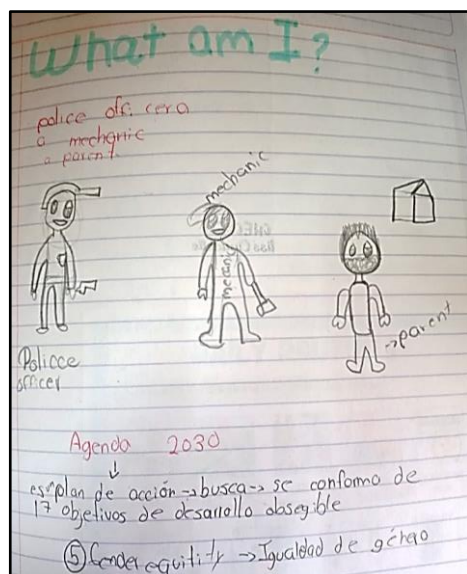 What am I?
police ofc. cera
a mechanic
a parent.
mechanic
mecanic
Policce
officer
→parent
Agenda 2030
↓
es→plan de acción→busca→ se conformo de
17 objetivos de desarollo
⑤ Gender equitity → Igualdad de género